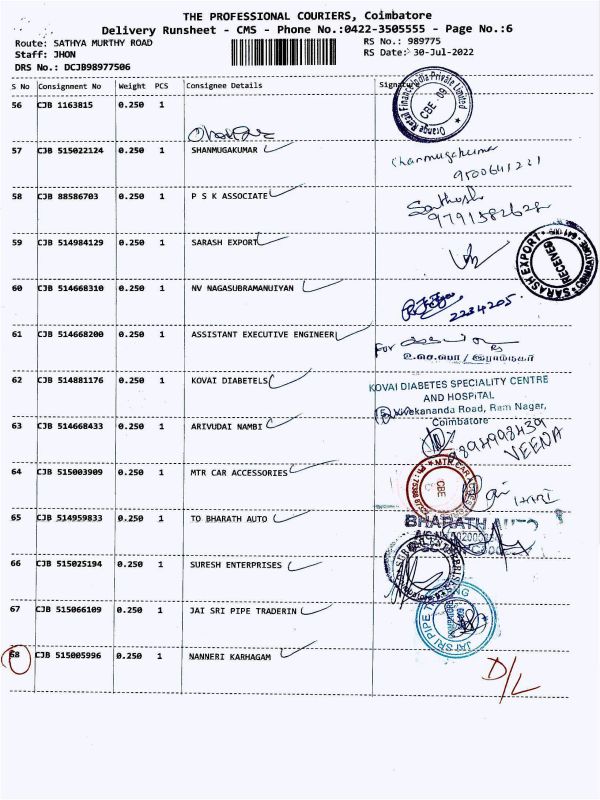 THE PROFESSIONAL COURIERS, Coimbatore
Delivery Runsheet - CMS - Phone No.:0422-3505555 - Page No.:6
Route: SATHYA MURTHY ROAD RS No.: 989775
Staff: JHON RS Date: 30-Jul-2022
DRS No.: DCJB98977506
S No Consignment No Weight PCS Consignee Details Signature
56 CJB 1163815 0.250 1
Orange Retail Finance India Private Limited CBE
57 CJB 515022124 0.250 1 SHANMUGAKUMAR
Shanmugakumar
9500641221
58 CJB 88586703 0.250 1 P S K ASSOCIATE
Santhosh
9791582628
59 CJB 514984129 0.250 1 SARASH EXPORT
SARASH EXPORT RECEIVED COIMBATORE
60 CJB 514668310 0.250 1 NV NAGASUBRAMANUIYAN
2234205
61 CJB 514668200 0.250 1 ASSISTANT EXECUTIVE ENGINEER
For
உ.செ.பொ/இராம்நகர்
62 CJB 514881176 0.250 1 KOVAI DIABETELS
KOVAI DIABETES SPECIALITY CENTRE
AND HOSPITAL
Vivekananda Road, Ram Nagar,
Coimbatore
63 CJB 514668433 0.250 1 ARIVUDAI NAMBI
9894998439
VEENA
64 CJB 515003909 0.250 1 MTR CAR ACCESSORIES
MTR CAR CBE
HARI
65 CJB 514959833 0.250 1 TO BHARATH AUTO
BHARATH AUTO
66 CJB 515025194 0.250 1 SURESH ENTERPRISES
67 CJB 515066109 0.250 1 JAI SRI PIPE TRADERIN
JAI SRI PIPE TRADING
68 CJB 515005996 0.250 1 NANNERI KARHAGAM
D/L